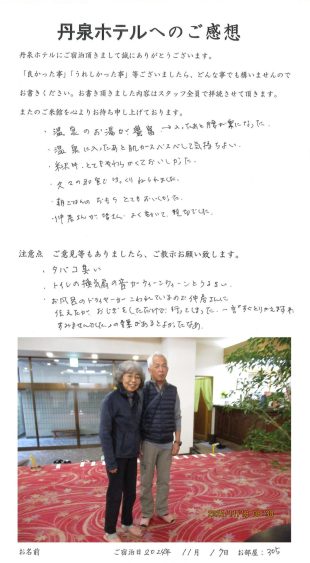 丹泉ホテルへのご感想
丹泉ホテルにご宿泊頂きまして誠にありがとうございます。
「良かった事」「うれしかった事」等ございましたら、どんな事でも構いませんので
お書きください。お書き頂きました内容はスタッフ全員で拝読させて頂きます。
またのご来館を心よりお待ち申し上げております。
・温泉のお湯が豊富 → 入ったあと腰が楽になった。
・温泉に入ったあと肌がスベスベして気持ちよい。
・とてもやわらかくておいしかった。
・久々の和室でゆっくりねられました。
・朝ごはんのおもちとてもおいしかった。
・仲居さんが皆さんよく動いて、親切でした。
注意点 ご意見等もありましたら、ご教示お願い致します。
・タバコ臭い
・トイレの換気扇の音がウィーンウィーンとうるさい。
・お風呂のドライヤーがこわれているのお仲居さんに
伝えたがおじぎをしただけで行ってしまった。一言"すぐとりかえます
すみませんでした"の言葉があるとよかったなあ。
お名前 ご宿泊日 2024年 11月 17日 お部屋:305